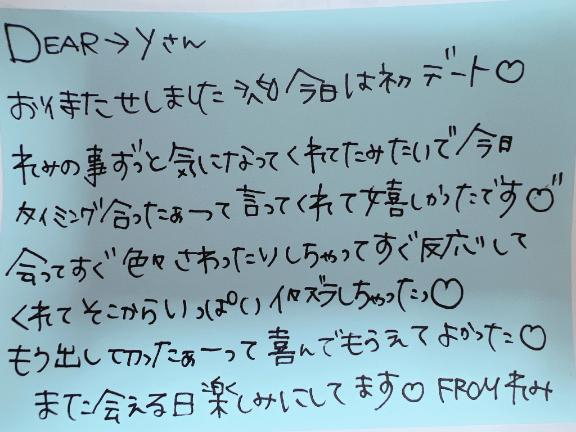 DEAR→Yさん
おまたせしました 今日は初デート♡
れみの事ずっと気になってくれてたみたいで今日
タイミング合ったぁーって言ってくれて嬉しかったです♡
会ってすぐ色々さわったりしちゃってすぐ反応して
くれてそこからいっぱいイタズラしちゃったっ♡
もう出し切ったぁーって喜んでもらえてよかった♡
また会える日楽しみにしてます♡ FROMれみ